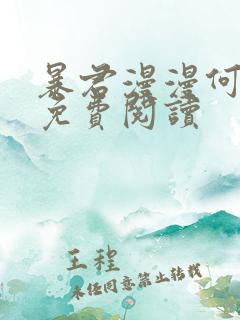 暴君漫漫何
免費閱讀
王程
未经同意禁止转载